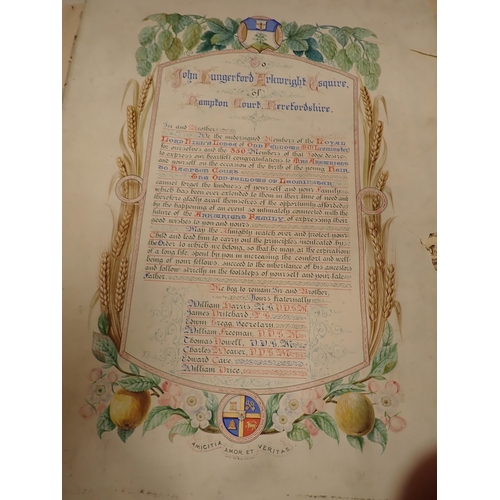 To
John Hungerford Arkwright Esquire,
of
Hampton Court, Herefordshire.
Sir and Brother,
We the undersigned Members of the Royal
Lord Hill's Lodge of Odd Fellows Leominster
for ourselves and the 350 Members of that Lodge desire
to express our heartfelt congratulations to Mrs Arkwright
and yourself on the occasion of the birth of the young Heir
to Hampton Court
The Odd-Fellows of Leominster
cannot forget the kindness of yourself and your Family
which has been ever extended to them in their time of need and
therefore gladly avail themselves of the opportunity afforded
by the happening of an event so intimately connected with the
future of the Arkwright Family, of expressing their
good wishes to you and yours
May the Almighty watch over and protect your
Child and lead him to carry out the principles inculcated by
the Order to which we belong, so that he may, at the expiration
of a long life, spent by you in increasing the comfort and well-
being of your fellows, succeed to the inheritance of his ancestors
and follow strictly in the footsteps of yourself and your late
Father.
We beg to remain Sir and Brother,
Yours fraternally
William Harris, N.G.
James Pritchard
Edwin Gregg, Secretary
William Freeman, P.P.G.M.
Thomas Powell, P.P.G.M.
Charles Weaver, P.P.G.M.
Edward Cave,
William Price,
AMICITIA AMOR ET VERITAS